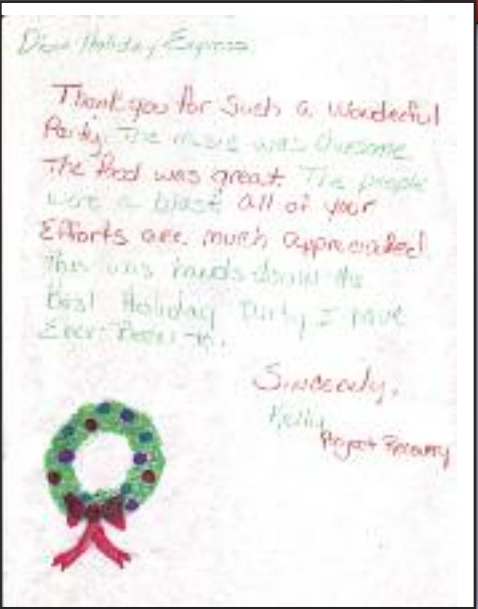 Dear Holiday Express
Thank you for Such a Wonderful
Party. The music was Awesome
The food was great. The people
were a blast. all of your
Efforts are much appreciated.
This was hands down the
Best Holiday Party I have
Ever Been to.
Sincerely,
Kelly
Project Recovery